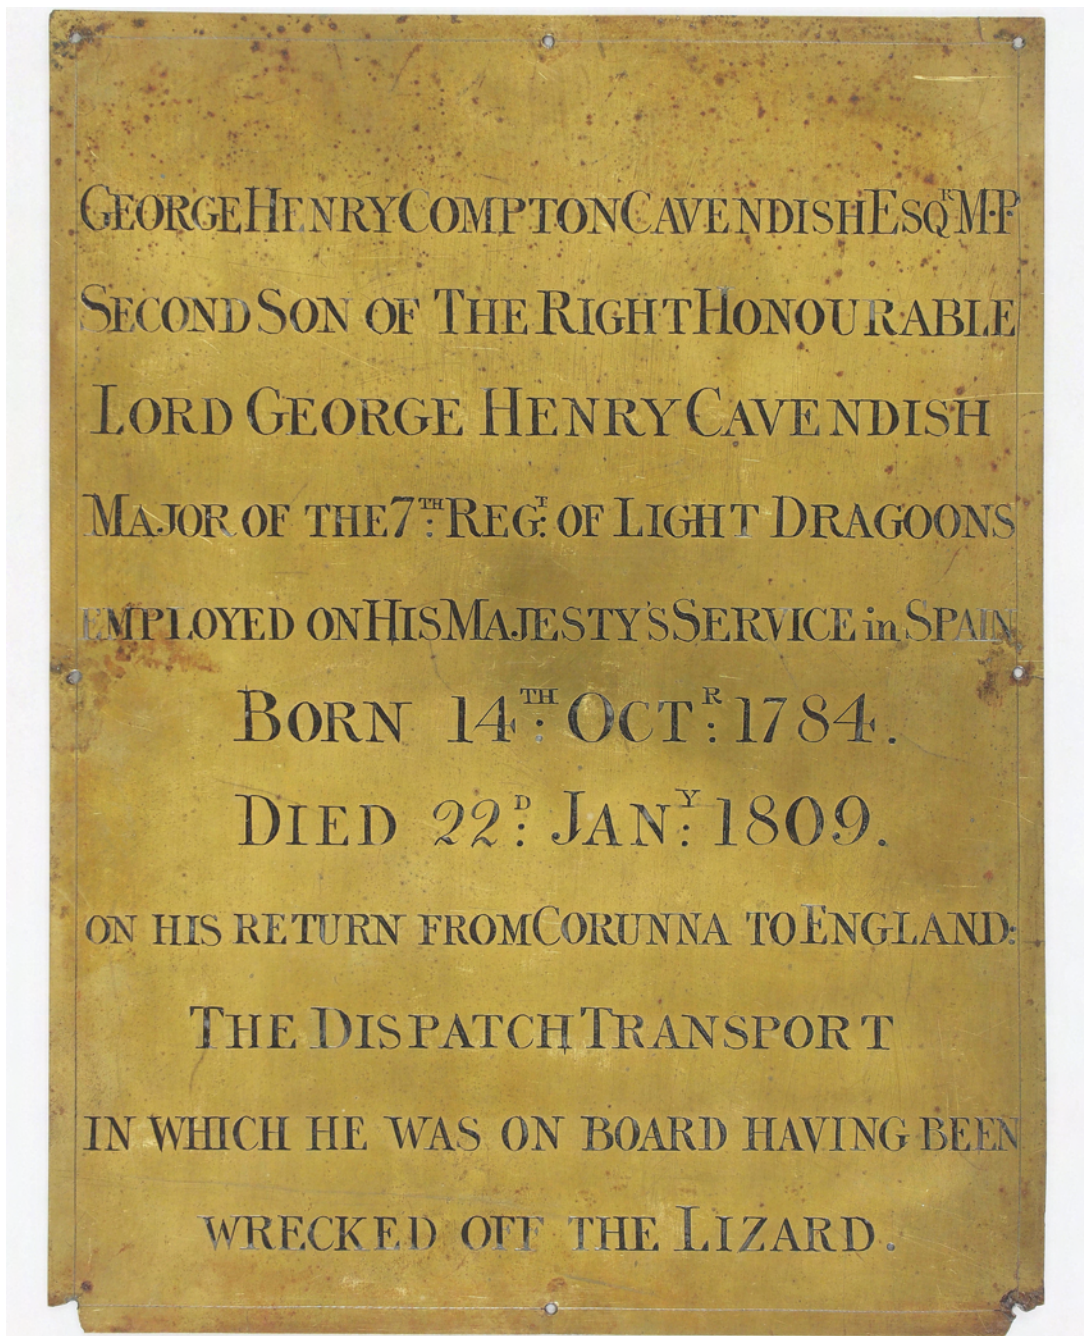 GEORGE HENRY COMPTON CAVENDISH ESQR M·P·
SECOND SON OF THE RIGHT HONOURABLE
LORD GEORGE HENRY CAVENDISH
MAJOR OF THE 7TH: REGT: OF LIGHT DRAGOONS
EMPLOYED ON HIS MAJESTY'S SERVICE in SPAIN
BORN 14TH: OCTR: 1784.
DIED 22D: JANY: 1809.
ON HIS RETURN FROM CORUNNA TO ENGLAND:
THE DISPATCH TRANSPORT
IN WHICH HE WAS ON BOARD HAVING BEEN
WRECKED OFF THE LIZARD.